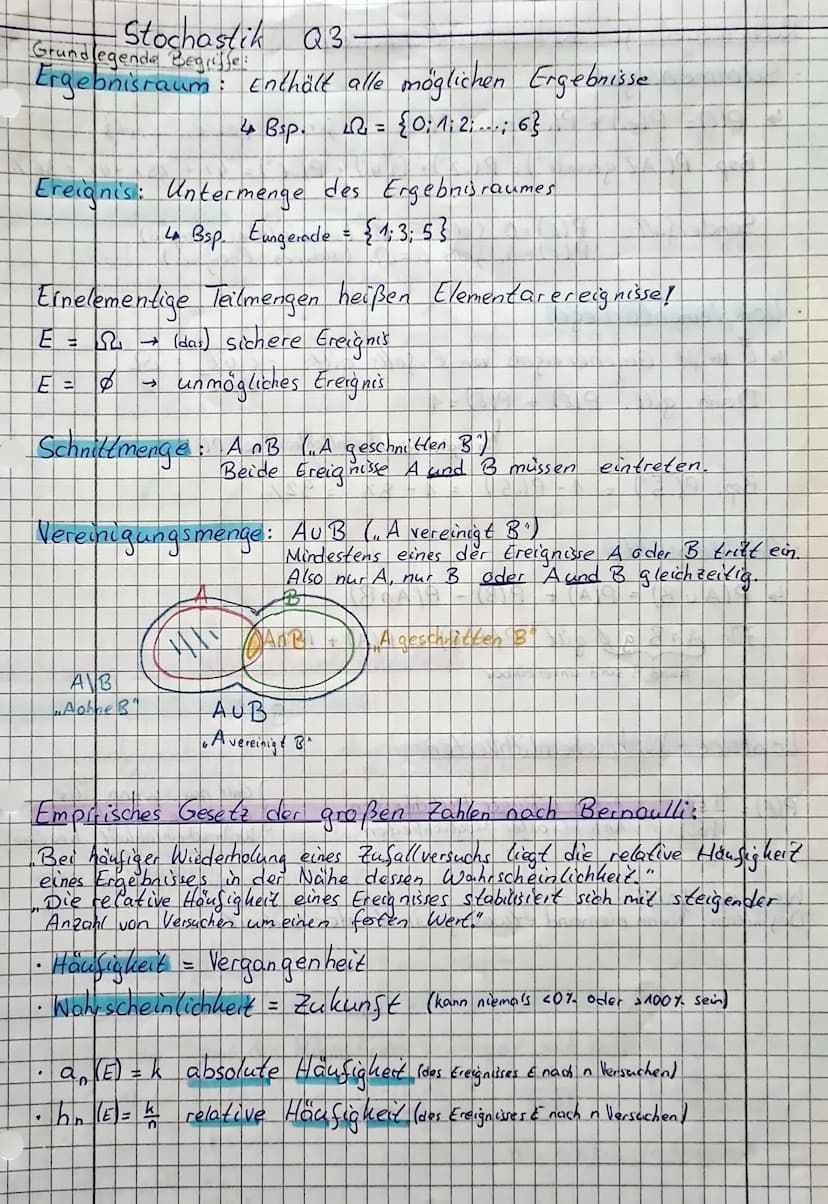 Stochastik Q3
Grundlegende Begriffe:
Ergebnisraum: Enthält alle möglichen Ergebnisse
↳ Bsp. Ω = {0; 1; 2; ...; 6}
Ereignis: Untermenge des Ergebnisraumes
↳ Bsp. Eungerade = {1; 3; 5}
Einelementige Teilmengen heißen Elementarereignisse!
E = Ω → (das) sichere Ereignis
E = ∅ → unmögliches Ereignis
Schnittmenge: A∩B („A geschnitten B")
Beide Ereignisse A und B müssen eintreten.
Vereinigungsmenge: A∪B („A vereinigt B")
Mindestens eines der Ereignisse A oder B tritt ein.
Also nur A, nur B oder A und B gleichzeitig.
A B
A∩B „A geschnitten B"
A\B
„A ohne B"
A∪B
„A vereinigt B"
Empirisches Gesetz der großen Zahlen nach Bernoulli:
„Bei häufiger Wiederholung eines Zufallversuchs liegt die relative Häufigkeit
eines Ergebnisses in der Nähe dessen Wahrscheinlichkeit."
„Die relative Häufigkeit eines Ereignisses stabilisiert sich mit steigender
Anzahl von Versuchen um einen festen Wert."
· Häufigkeit = Vergangenheit
· Wahrscheinlichkeit = Zukunft (kann niemals <0% oder >100% sein)
· an(E) = k absolute Häufigkeit (des Ereignisses E nach n Versuchen)
· hn(E) = k/n relative Häufigkeit (des Ereignisses E nach n Versuchen)